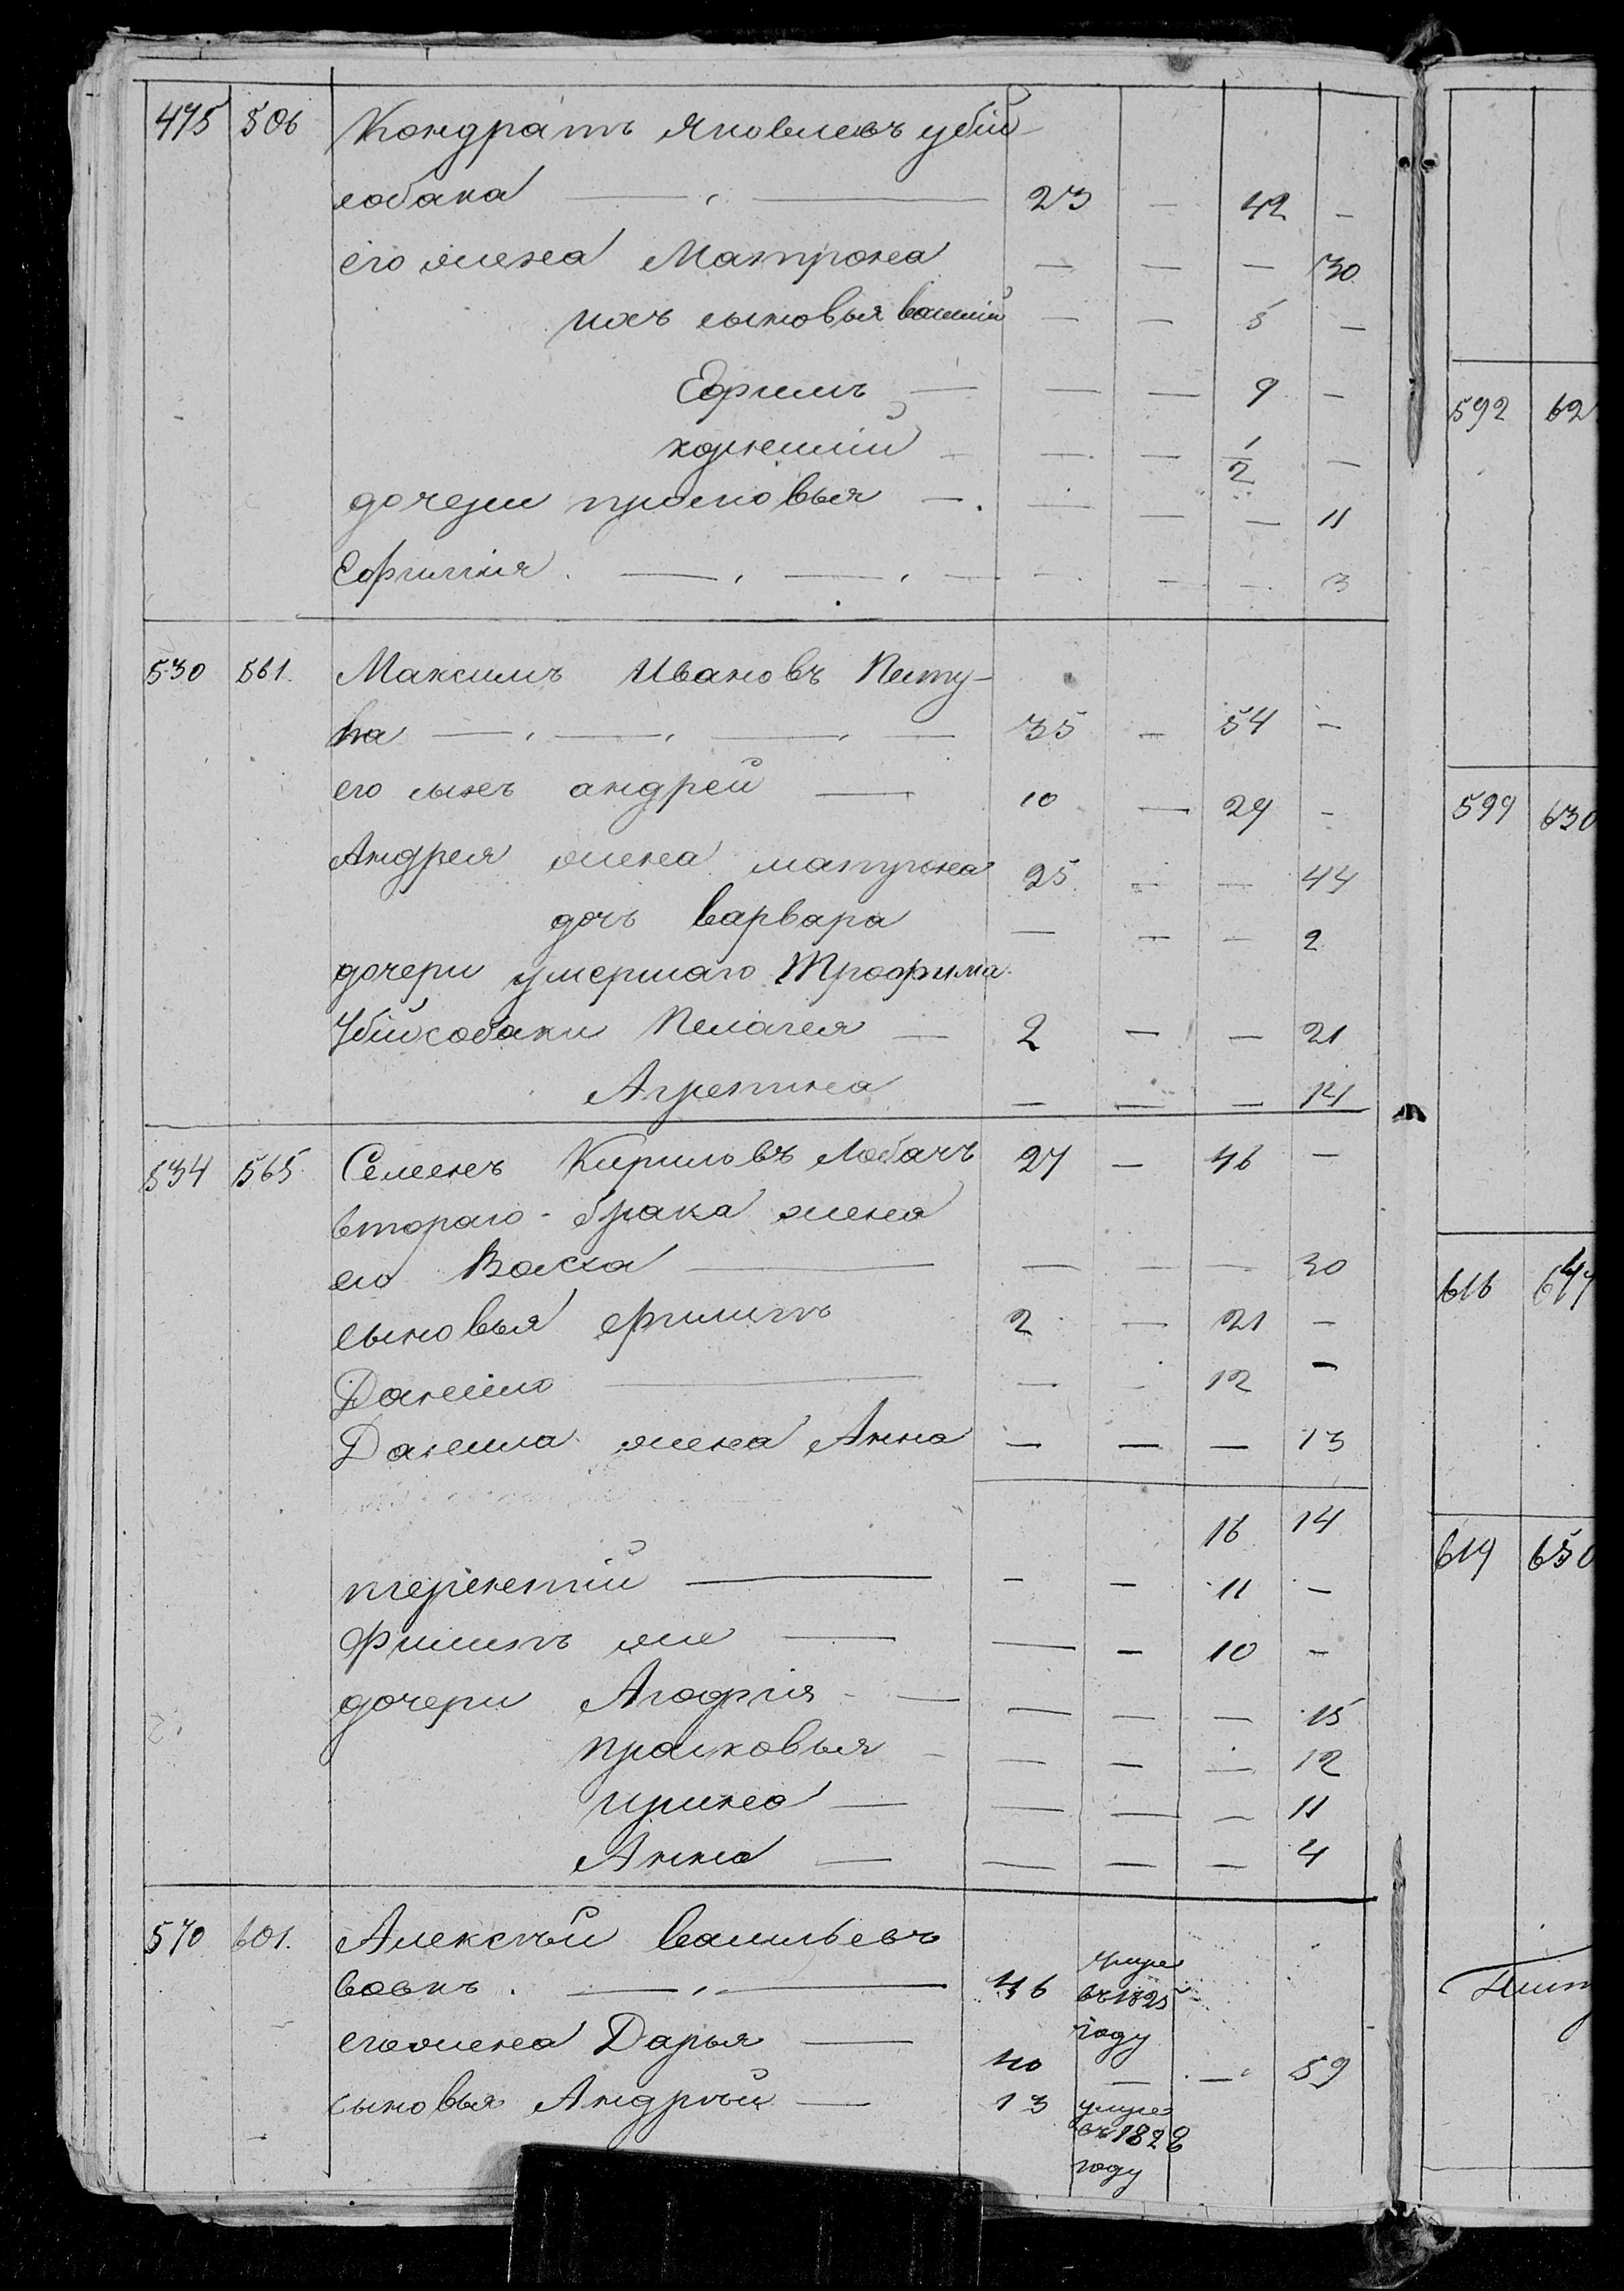 475 506 Кондратъ Яковлевъ убій-
собака — 23 — 42 —
его жена Матрона — — — 30
ихъ сыновья Василій — — 5 —
Ефимъ — — — 9 —
корнилій — — — 1/2 —
дочери прасковья — — — — 11
Ефимия — — — — — 3
530 561. Максимъ Ивановъ Пету-
ха — — — — 35 — 54 —
его сынъ андрей — 10 — 29 —
Андрея жена матрона 25 — — 44
дочь варвара — — — 2
дочери умершаго Трофима
Убійсобаки Пелагея — 2 — — 21
Агрепина — — — 14
534 565 Семенъ Кириловъ Лобачъ 27 — 46 —
втораго - брака жена
его Васса — — — — 30
сыновья филипъ 2 — 21 —
Данило — — — 12 —
Данила жена Анна — — — 13
16 14
терентій — — — 11 —
Филипъ же — — — 10 —
дочери Агафия — — — — 15
прасковья — — — — 12
ирина — — — — 11
Анна — — — — 4
570 601. Алексѣй Васильевъ
вовкъ. — — 46 умре въ 1825 году
его жена Дарья — 40 — — 59
сыновья Андрѣй — 13 умре въ 1826 году
592 62
599 630
616 647
619 650